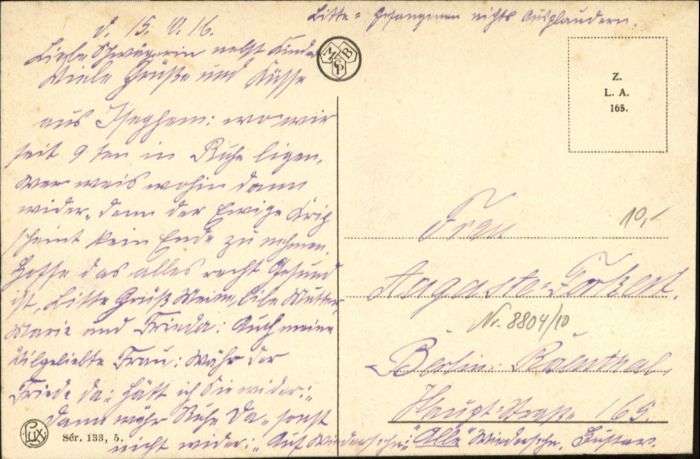 d. 15. V. 16.
Bitte: Gefangenen nichts Ausplaudern.
Liebe Schwägerin nebst Kinder
Viele Grüße und Küsse
aus Iseghem: wo wir
seit 9ten in Ruhe ligen,
wer weis wohin dann
wider, denn der Ewige Krig
scheint kein Ende zu nehmen
Hoffe das alles recht Gesund
ist, Bitte Grüß Mutter
Marie und Frieda: Auch meine
Vilgeliebte Frau: Währ der
Friede da: Hätt ich Sie wider:
Dann währ Ruhe Da sonst
nicht wider: "Auf Wiedersehn:" Alle Wiedersehn. Gustav.
Z B
Z.
L. A.
165.
Frau
Auguste
10,-
Nr. 8804/10
Berlin: Rosenthal
Haupt-Straße 165.
Lux
Sér. 133, 5.